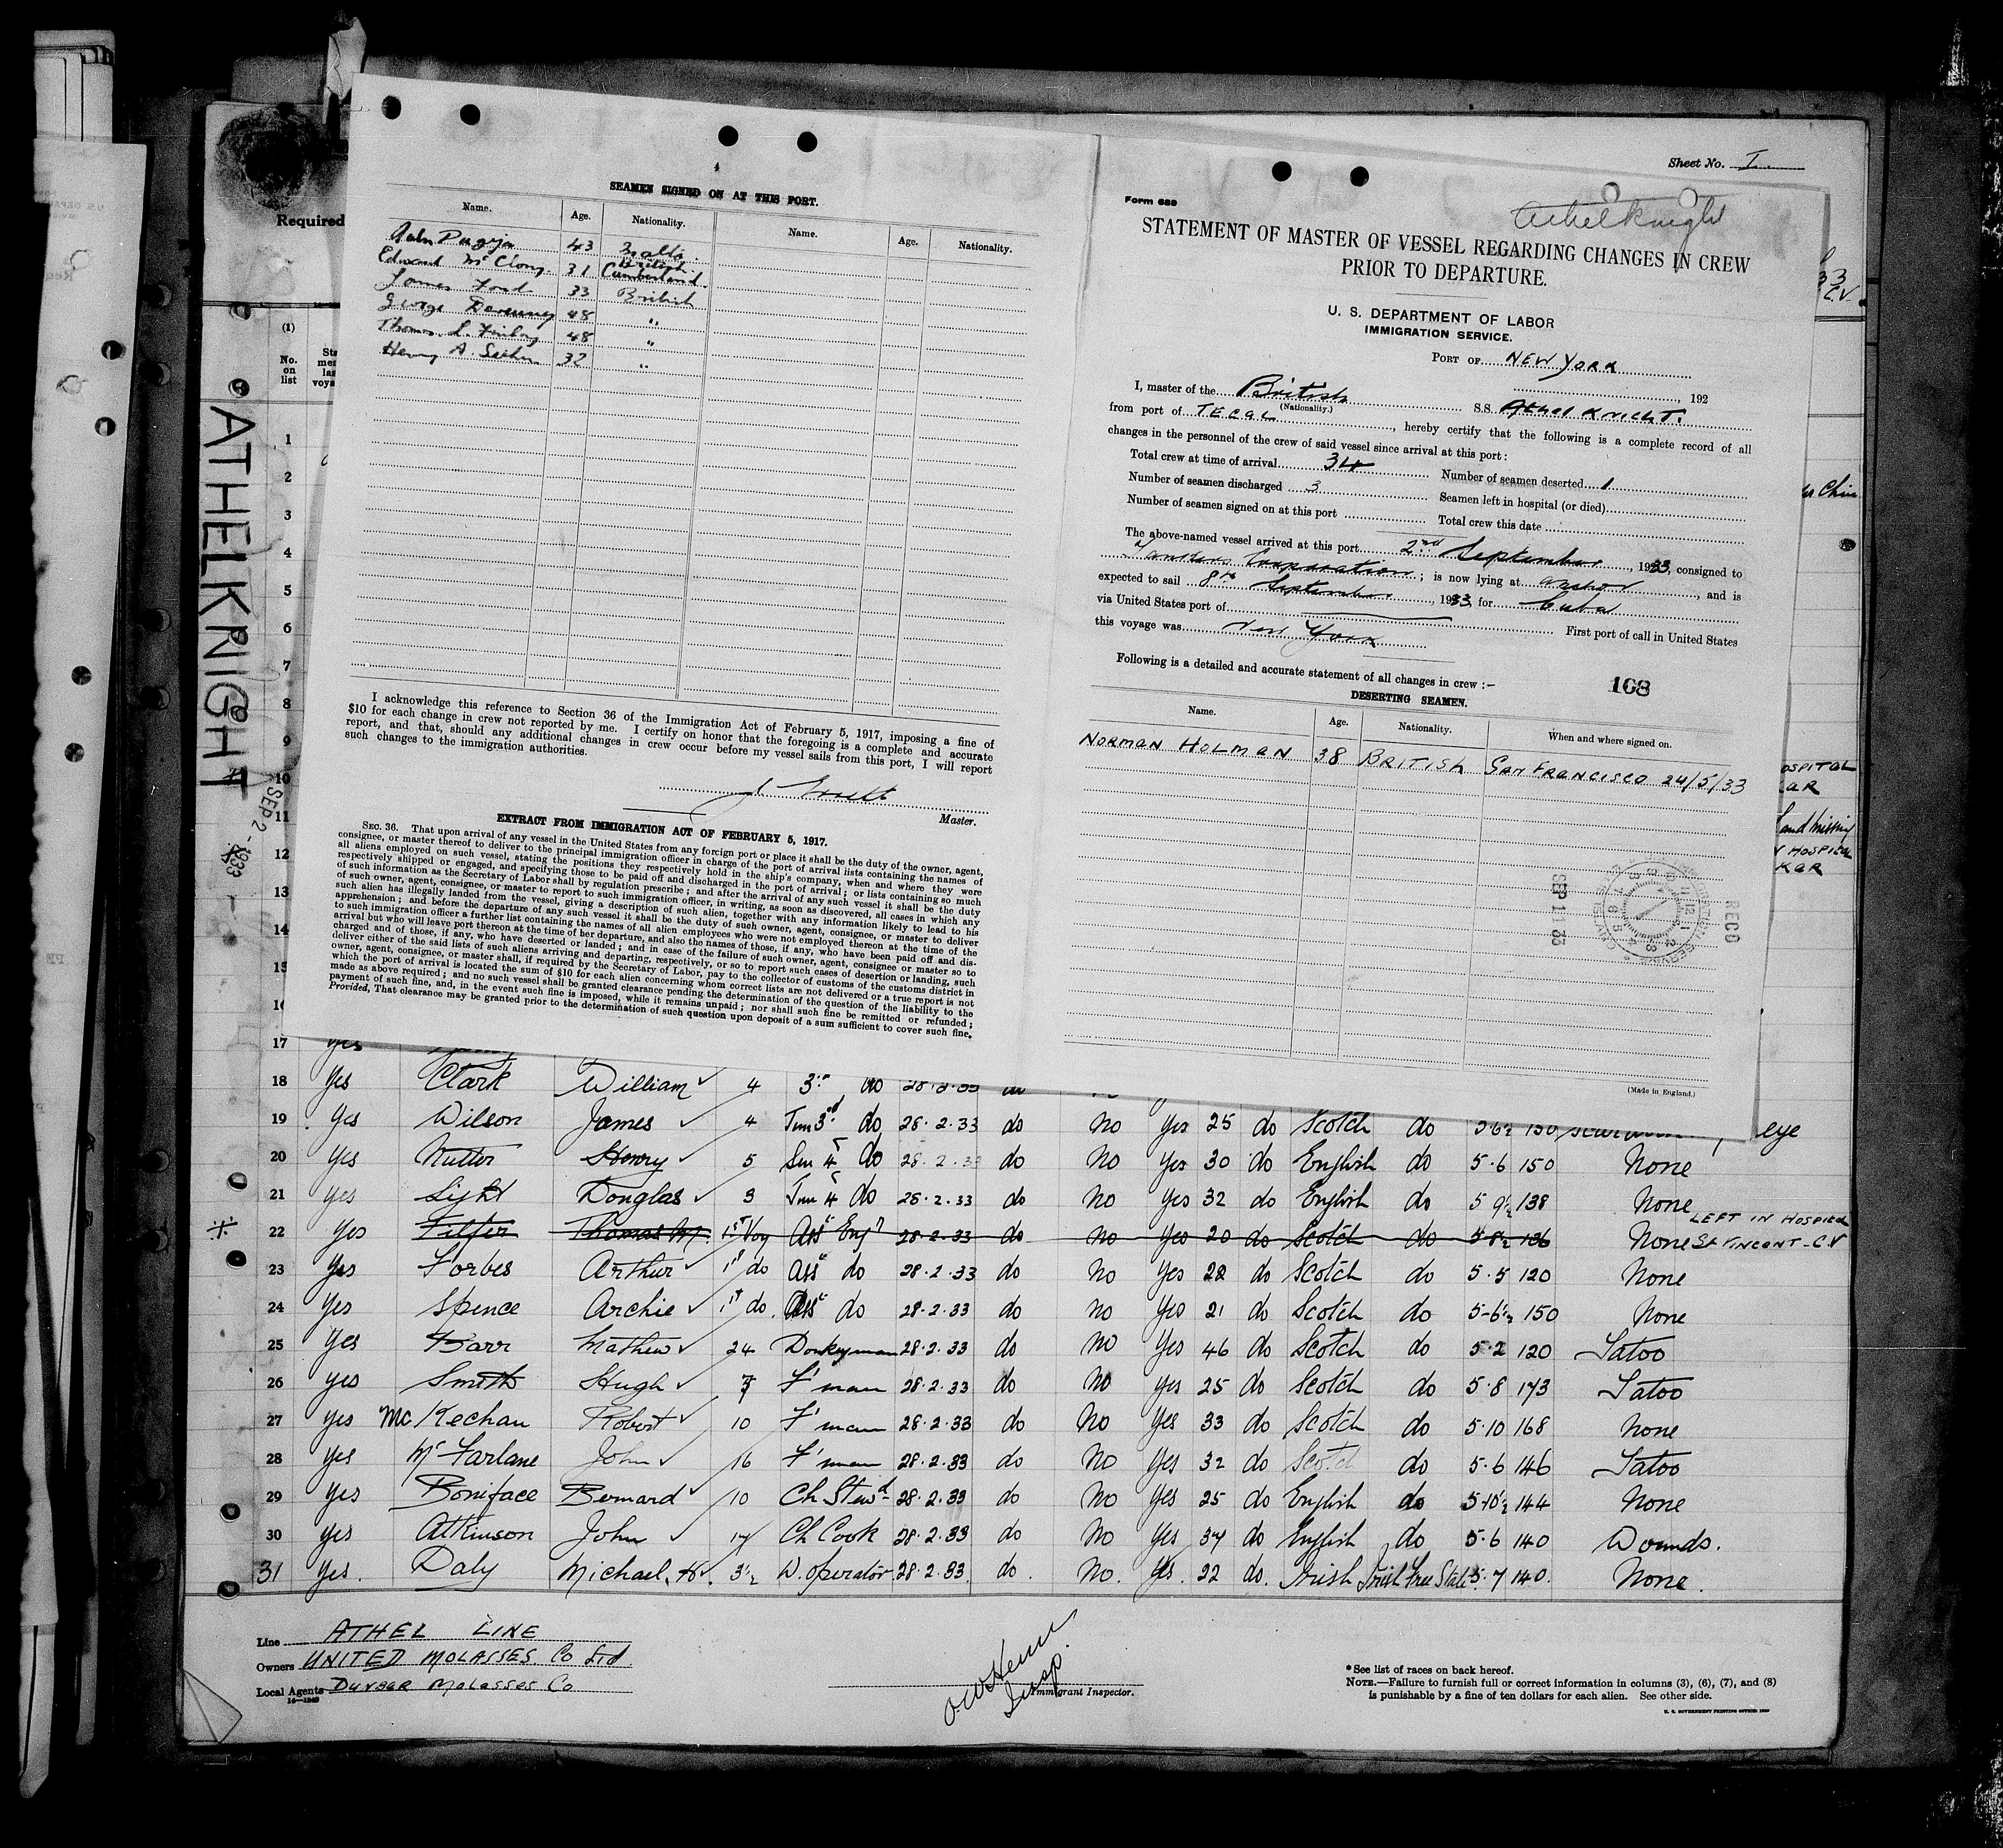 Sheet No. I.
Required
ATHELKNIGHT
SEP 2 - 1933
SEAMEN SIGNED ON AT THIS PORT.
Name. Age. Nationality. Name. Age. Nationality.
43 Malta.
Edward Mc Clong. 31 British Cumberland.
James Ford 33 British
George Devenney 48 "
Thomas L. Finlay 48 "
Henry A. 32 "
I acknowledge this reference to Section 36 of the Immigration Act of February 5, 1917, imposing a fine of
$10 for each change in crew not reported by me. I certify on honor that the foregoing is a complete and accurate
report, and that, should any additional changes in crew occur before my vessel sails from this port, I will report
such changes to the immigration authorities.
Master.
EXTRACT FROM IMMIGRATION ACT OF FEBRUARY 5, 1917.
SEC. 36. That upon arrival of any vessel in the United States from any foreign port or place it shall be the duty of the owner, agent,
consignee, or master thereof to deliver to the principal immigration officer in charge of the port of arrival lists containing the names of
all aliens employed on such vessel, stating the positions they respectively hold in the ship's company, when and where they were
respectively shipped or engaged, and specifying those to be paid off and discharged in the port of arrival; or lists containing so much
of such information as the Secretary of Labor shall by regulation prescribe; and after the arrival of any such vessel it shall be the duty
of such owner, agent, consignee, or master to report to such immigration officer, in writing, as soon as discovered, all cases in which any
such alien has illegally landed from the vessel, giving a description of such alien, together with any information likely to lead to his
apprehension; and before the departure of any such vessel it shall be the duty of such owner, agent, consignee, or master to deliver
to such immigration officer a further list containing the names of all alien employees who were not employed thereon at the time of the
arrival but who will leave port thereon at the time of her departure, and also the names of those, if any, who have been paid off and dis-
charged and of those, if any, who have deserted or landed; and in case of the failure of such owner, agent, consignee or master so to
deliver either of the said lists of such aliens arriving and departing, respectively, or so to report such cases of desertion or landing, such
owner, agent, consignee, or master shall, if required by the Secretary of Labor, pay to the collector of customs of the customs district in
which the port of arrival is located the sum of $10 for each alien concerning whom correct lists are not delivered or a true report is not
made as above required; and no such vessel shall be granted clearance pending the determination of the question of the liability to the
payment of such fine, and, in the event such fine is imposed, while it remains unpaid; nor shall such fine be remitted or refunded;
Provided, That clearance may be granted prior to the determination of such question upon deposit of a sum sufficient to cover such fine.
Form 689
Athelknight
STATEMENT OF MASTER OF VESSEL REGARDING CHANGES IN CREW
PRIOR TO DEPARTURE.
U. S. DEPARTMENT OF LABOR
IMMIGRATION SERVICE.
PORT OF NEW YORK
, 192
I, master of the British S.S. Athel Knight.
(Nationality.)
from port of TEGAL, hereby certify that the following is a complete record of all
changes in the personnel of the crew of said vessel since arrival at this port:
Total crew at time of arrival 34 Number of seamen deserted 1
Number of seamen discharged 3 Seamen left in hospital (or died)
Number of seamen signed on at this port Total crew this date
The above-named vessel arrived at this port 2nd September, 1933, consigned to
Tankers Corporation; is now lying at anchor, and is
expected to sail 8th September, 1933, for Cuba
via United States port of First port of call in United States
this voyage was New York
Following is a detailed and accurate statement of all changes in crew :—
168
DESERTING SEAMEN.
Name. Age. Nationality. When and where signed on.
NORMAN HOLMAN 38 BRITISH SAN FRANCISCO 24/5/33
SEP 11 33
RECD
(Made in England.)
(1)
No. on list
1
2
3
4
5
6
7
8
9
10
11
12
13
14
15
17 Yes
18 Yes Clark William 4 3rd do 28.2.33 do
19 Yes Wilson James 4 Jun 3rd do 28.2.33 do No Yes 25 do Scotch do 5-6½ 150 eye
20 Yes Nutter Henry 5 Sen 4 do 28.2.33 do No Yes 30 do English do 5.6 150 None
21 Yes Light Douglas 3 Jun 4 do 28.2.33 do No Yes 32 do English do 5 9½ 138 None
22 Yes Filfer Thomas 1st Voy Ass Eng 28.2.33 do No Yes 20 do Scotch do 5-8½ 136 None LEFT IN HOSPITAL St VINCENT-C.V
23 Yes Forbes Arthur 1st do Ass do 28.2.33 do No Yes 22 do Scotch do 5.5 120 None
24 Yes Spence Archie 1st do Ass do 28.2.33 do No Yes 21 do Scotch do 5-6½ 150 None
25 Yes Barr Mathew 24 Donkeyman 28.2.33 do No Yes 46 do Scotch do 5.2 120 Tatoo
26 Yes Smith Hugh 7 F'man 28.2.33 do No Yes 25 do Scotch do 5.8 173 Tatoo
27 Yes McKechan Robert 10 F'man 28.2.33 do No Yes 33 do Scotch do 5.10 168 None
28 Yes McFarlane John 16 F'man 28.2.33 do No Yes 32 do Scotch do 5.6 146 Tatoo
29 Yes Boniface Bernard 10 Ch Stewd 28.2.33 do No Yes 25 do English do 5-10½ 144 None
30 Yes Atkinson John 17 Ch Cook 28.2.33 do No Yes 37 do English do 5.6 140 Wounds.
31 Yes. Daly Michael. H. 3½ W. operator 28.2.33 do. No. Yes. 22 do. Irish Irish Free State 5.7 140. None.
Line ATHEL LINE
Owners UNITED MOLASSES Co Ltd.
Local Agents DUNBAR MOLASSES Co
14—1240
Insp.
Immigrant Inspector.
* See list of races on back hereof.
NOTE.—Failure to furnish full or correct information in columns (3), (6), (7), and (8)
is punishable by a fine of ten dollars for each alien. See other side.
U. S. GOVERNMENT PRINTING OFFICE